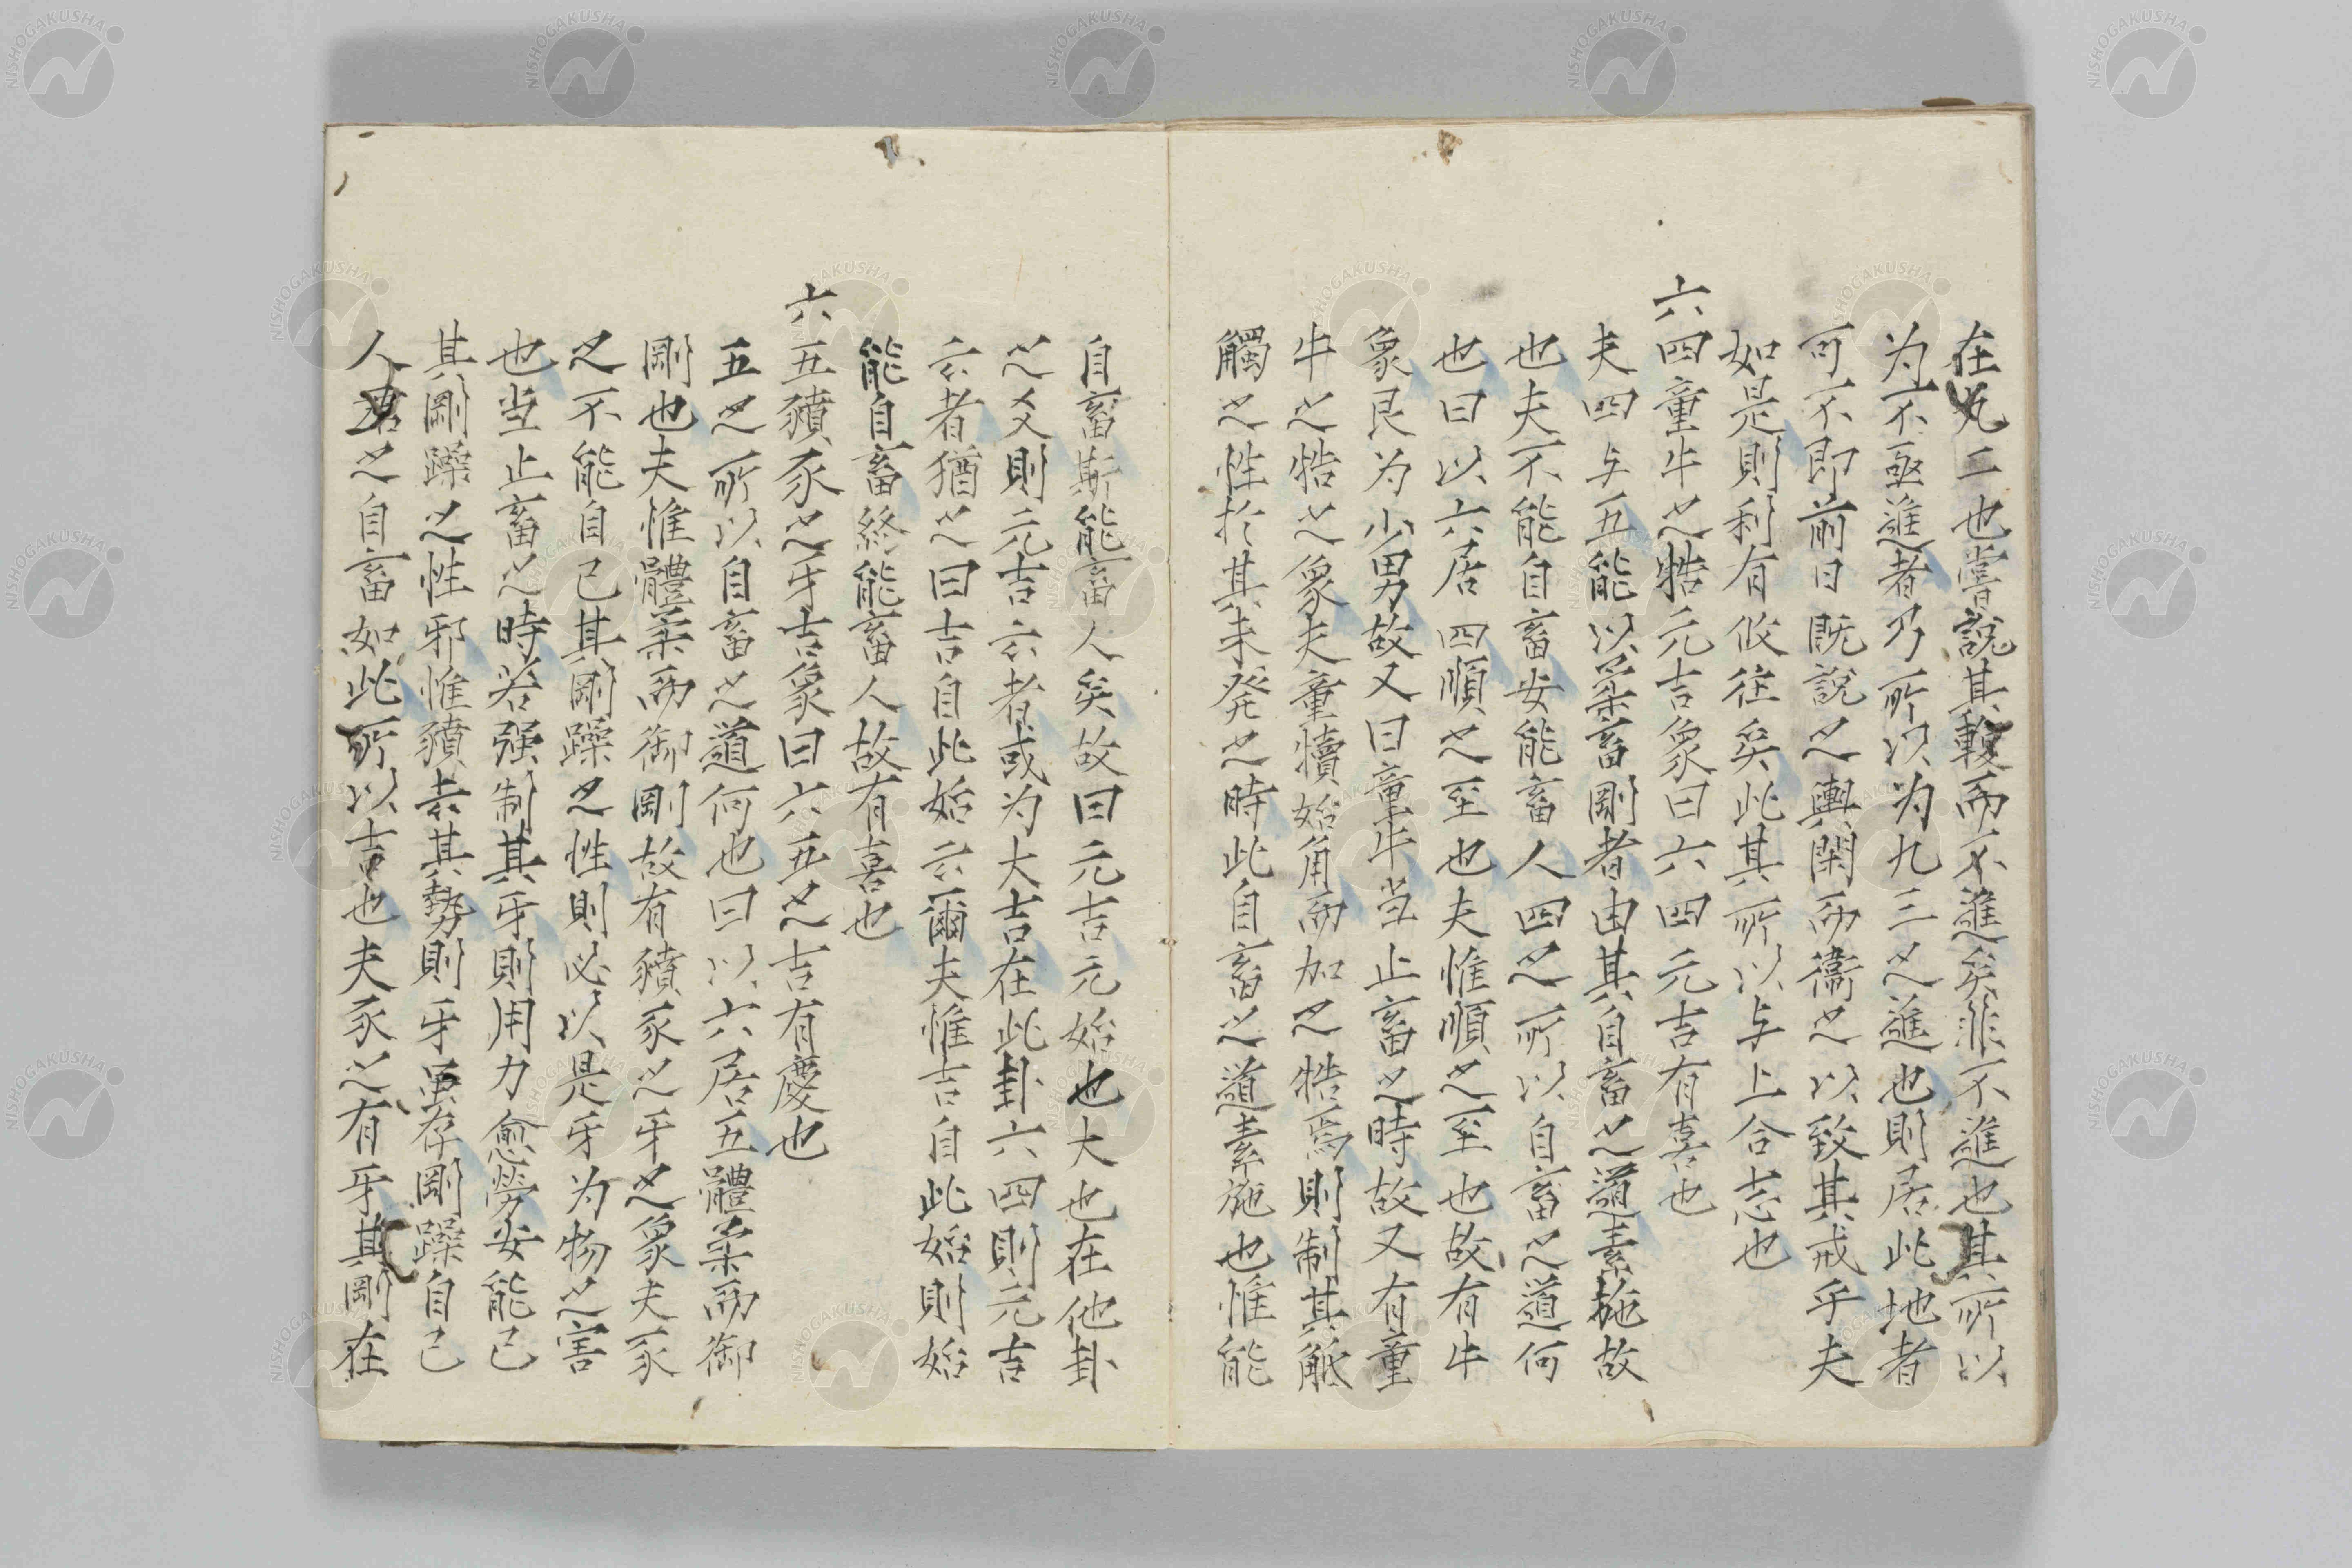 在九二也嘗說其輹而不進矣非不進也其所以
为不亟進者乃所以为九三之進也則居此地者
可不即前日既說之輿閑而衞之以致其戒乎夫
如是則利有攸往矣此其所以与上合志也
六四童牛之牿元吉象曰六四元吉有喜也
夫四与五能以柔畜剛者由其自畜之道素施故
也夫不能自畜安能畜人四之所以自畜之道何
也曰以六居四順之至也夫惟順之至也故有牛
象艮为少男故又曰童牛当止畜之時故又有童
牛之牿之象夫童犢始角而加之牿焉則制其觝
觸之性於其未発之時此自畜之道素施也惟能
自畜斯能畜人矣故曰元吉元始也大也在他卦
之爻則元吉云者或为大吉在此卦六四則元吉
云者猶之曰吉自此始云爾夫惟吉自此始則始
能自畜終能畜人故有喜也
六五豶豕之牙吉象曰六五之吉有慶也
五之所以自畜之道何也曰以六居五體柔而御
剛也夫惟體柔而御剛故有豶豕之牙之象夫豕
之不能自已其剛躁之性則必以是牙为物之害
也当止畜之時若强制其牙則用力愈勞安能已
其剛躁之性邪惟豶去其勢則牙虽存剛躁自已
人君之自畜如此所以吉也夫豕之有牙其剛在
NISHOGAKUSHA